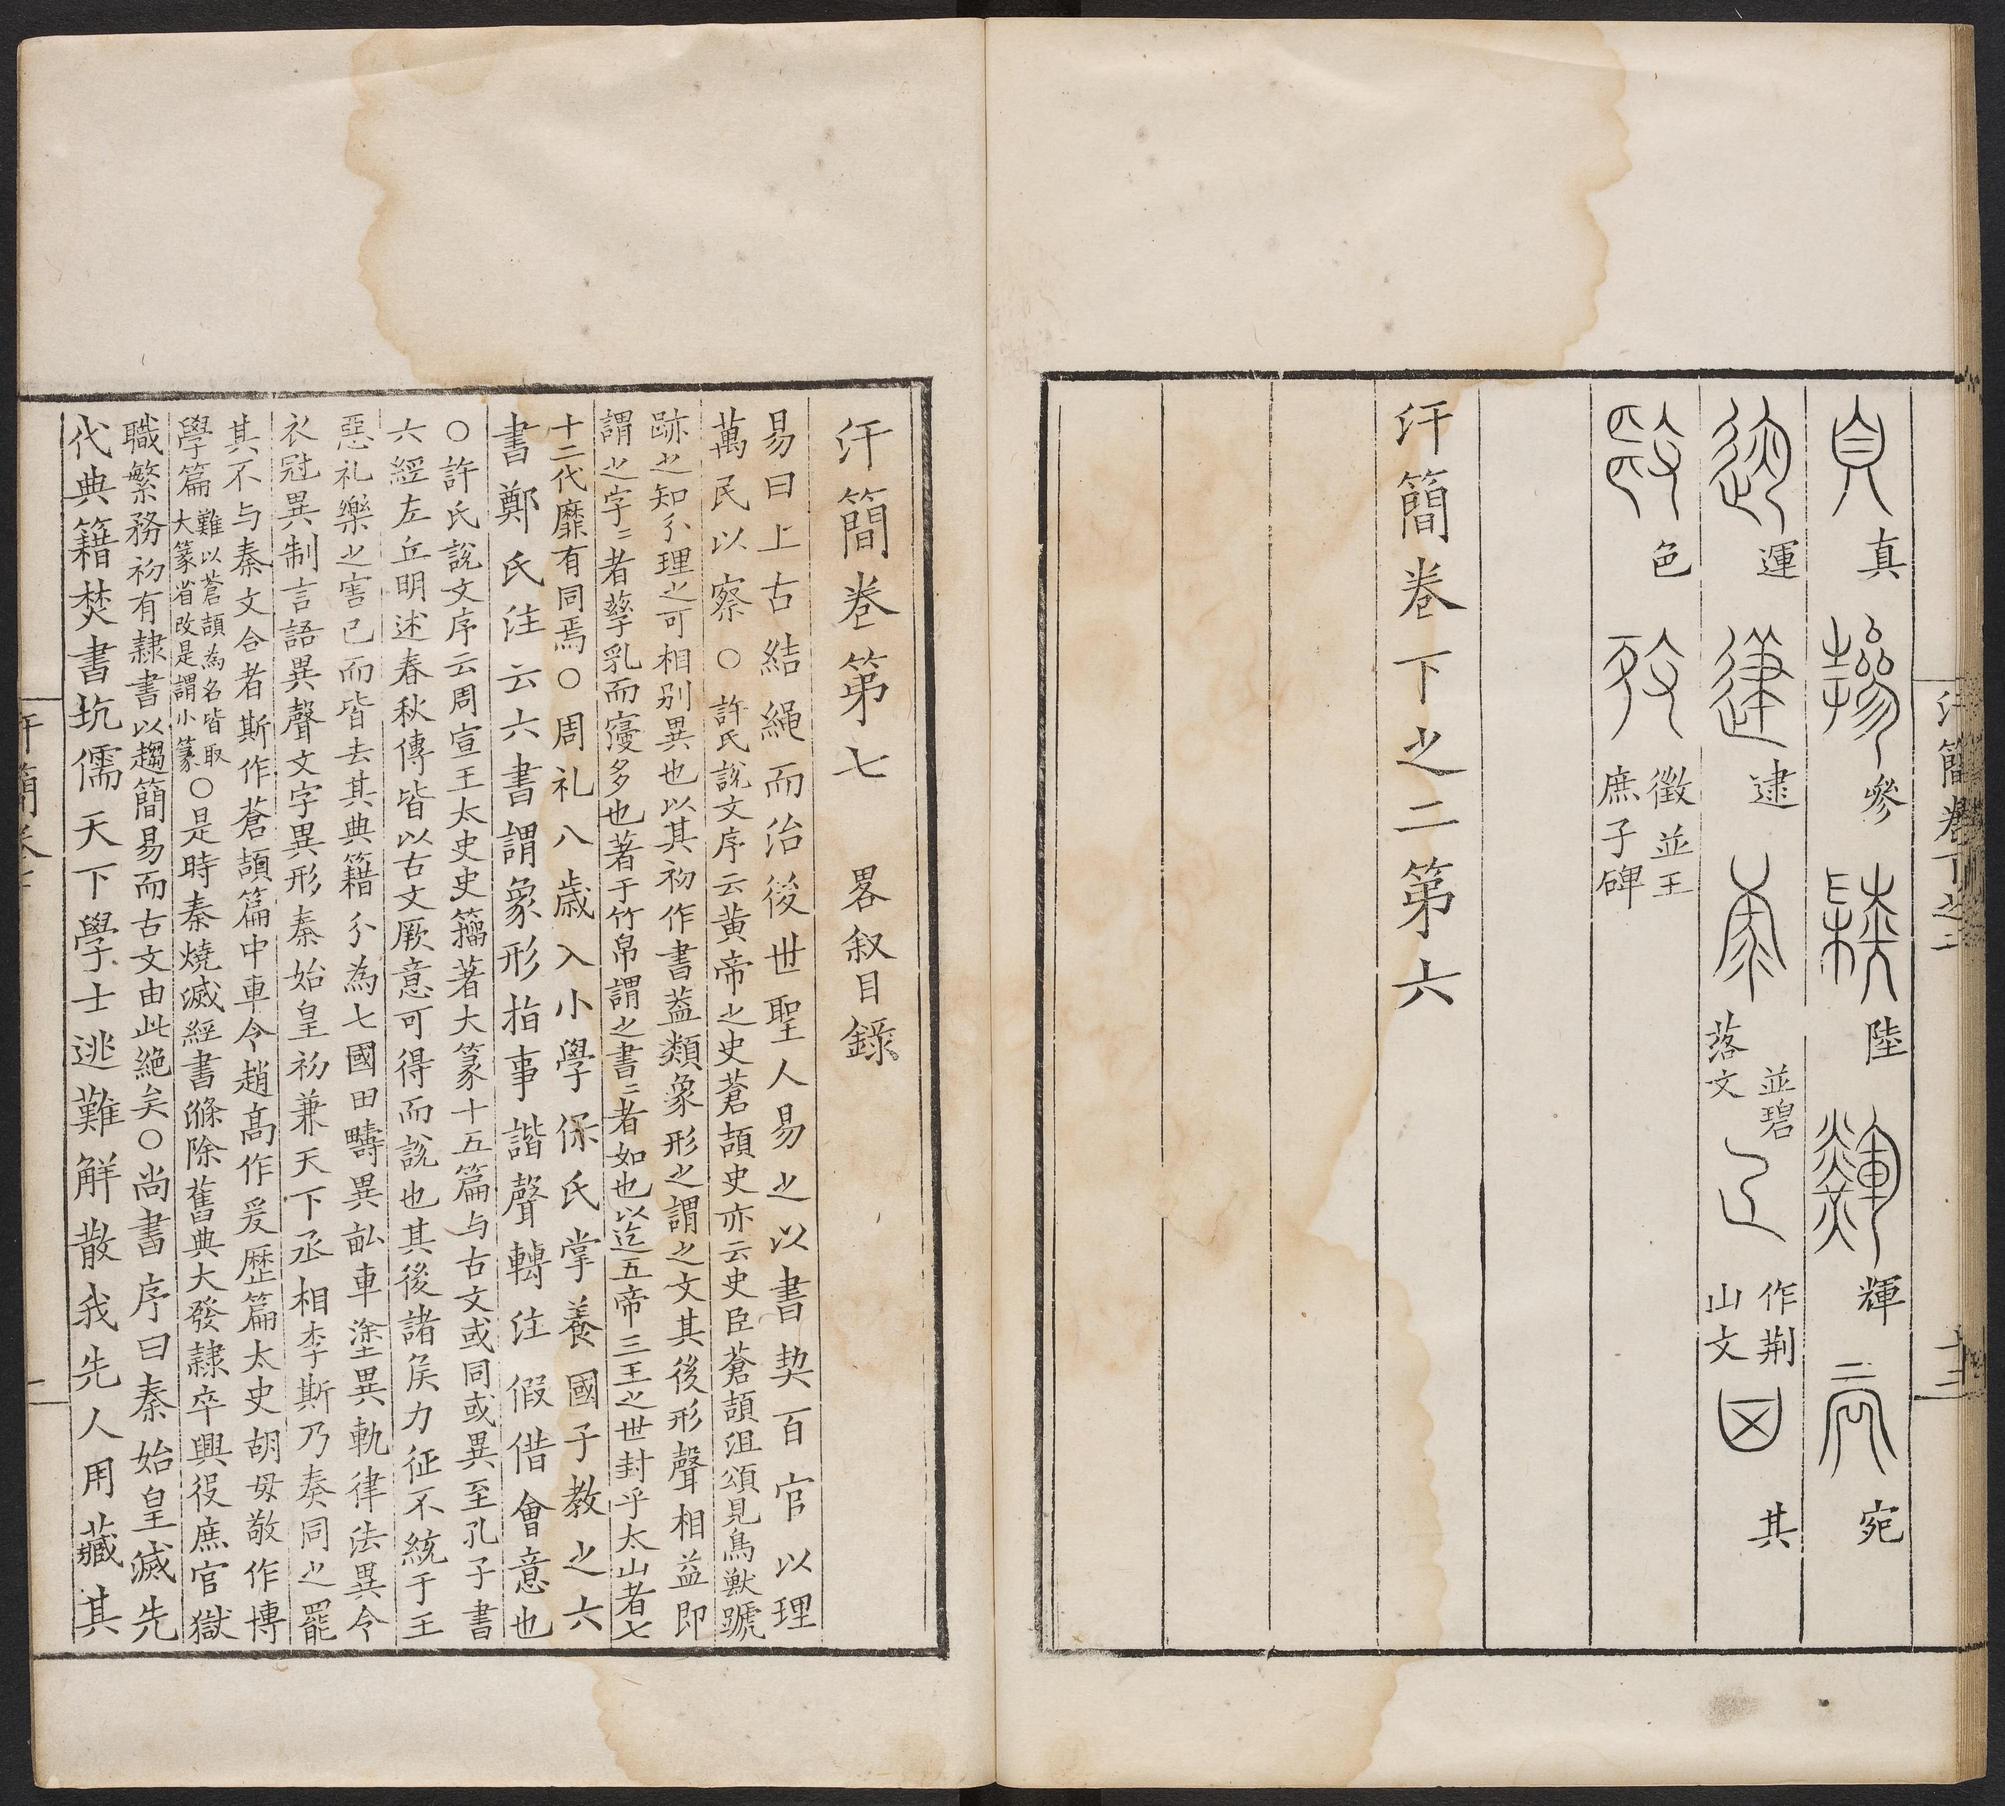 汗簡卷下之二 十三
真 參 陸 輝 宛
運 逮 並碧落文 作荆山文 其
色 徵 並王庶子碑
汗簡卷下之二第六
汗簡卷第七 畧叙目錄
易曰上古結繩而治後世聖人易之以書契百官以理
萬民以察○許氏說文序云黄帝之史蒼頡史亦云史臣蒼頡沮頌見鳥獸蹏
跡之知分理之可相别異也以其初作書葢類象形之謂之文其後形聲相益即
謂之字〻者孳乳而寖多也著于竹帛謂之書〻者如也以迄五帝三王之世封乎太山者七
十二代靡有同焉○周礼八歳入小學保氏掌養國子教之六
書鄭氏注云六書謂象形指事諧聲轉注假借會意也
○許氏說文序云周宣王太史史籀著大篆十五篇与古文或同或異至孔子書
六經左丘明述春秋傳皆以古文厥意可得而說也其後諸矦力征不統于王
惡礼樂之害己而皆去其典籍分為七國田疇異畆車塗異軌律法異令
衣冠異制言語異聲文字異形秦始皇初兼天下丞相李斯乃奏同之罷
其不与秦文合者斯作蒼頡篇中車令趙高作爰歴篇太史胡毋敬作博
學篇難以蒼頡為名皆取大篆省改是謂小篆○是時秦燒滅經書滌除舊典大發隷卒興役庶官獄
職繁務初有隷書以趨簡易而古文由此絶矣○尚書序曰秦始皇滅先
代典籍焚書坑儒天下學士逃難解散我先人用藏其
汗簡卷七 一